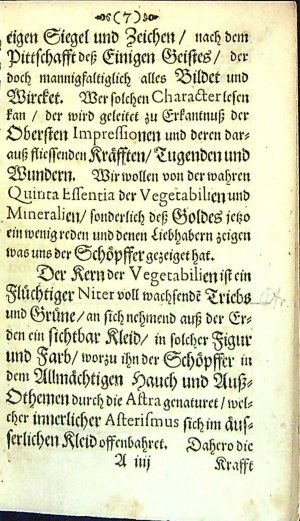 (7)
tigen Siegel und Zeichen / nach dem
Pittschafft deß Einigen Geistes / der
doch mannigfaltiglich alles Bildet und
Wircket. Wer solchen Character lesen
kan / der wird geleitet zu Erkantnuß der
Obersten Impressionen und deren dar-
auß fliessenden Kräfften / Tugenden und
Wundern. Wir wollen von der wahren
Quinta Essentia der Vegetabilien und
Mineralien / sonderlich deß Goldes jetzo
ein wenig reden und denen Liebhabern zeigen
was uns der Schöpffer gezeiget hat.
Der Kern der Vegetabilien ist ein
Flüchtiger Niter voll wachsende Triebs
und Grüne / an sich nehmend auß der Er-
den ein sichtbar Kleid / in solcher Figur
und Farb / worzu ihn der Schöpffer in
dem Allmächtigen Hauch und Auß-
Othemen durch die Astra genaturet / wel-
cher innerlicher Asterismus sich im äus-
serlichen Kleid offenbahret. Dahero die
A iiij Krafft